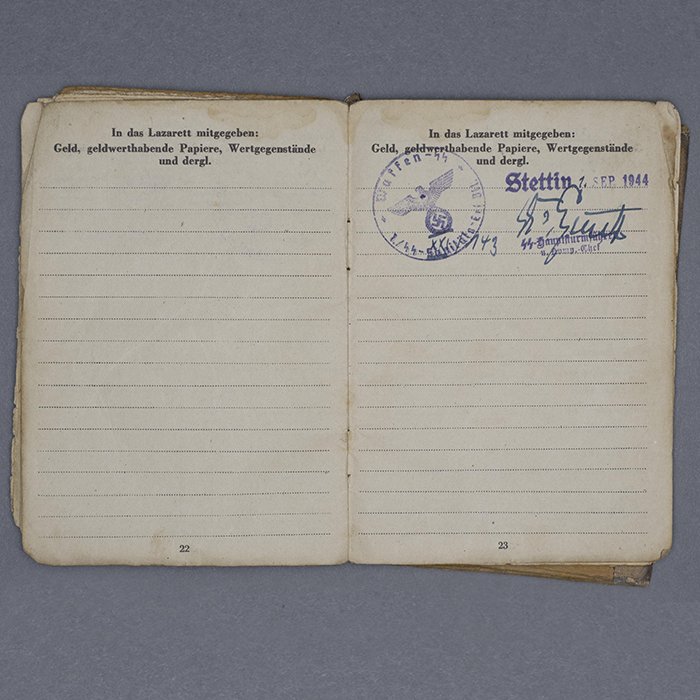 In das Lazarett mitgegeben:
Geld, geldwerthabende Papiere, Wertgegenstände
und dergl.
22
In das Lazarett mitgegeben:
Geld, geldwerthabende Papiere, Wertgegenstände
und dergl.
Waffen-SS
Stettin 1. SEP. 1944
SS-Hauptsturmführer
u. Komp.-Chef
23